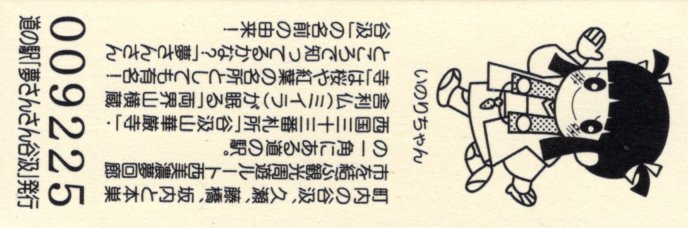 町内の谷汲、久瀬、藤橋、坂内と本巣
市を結ぶ観光周遊ルート西美濃夢回廊
の一角にある道の駅。
西国三十三番札所「谷汲山華厳寺」、
舎利仏(ミイラ)が眠る「両界山横蔵
寺」は桜や紅葉の名所としても有名!
ところで知ってるかな?「夢さんさん
谷汲」の名前の由来!
いのりちゃん
009225
道の駅「夢さんさん谷汲」発行